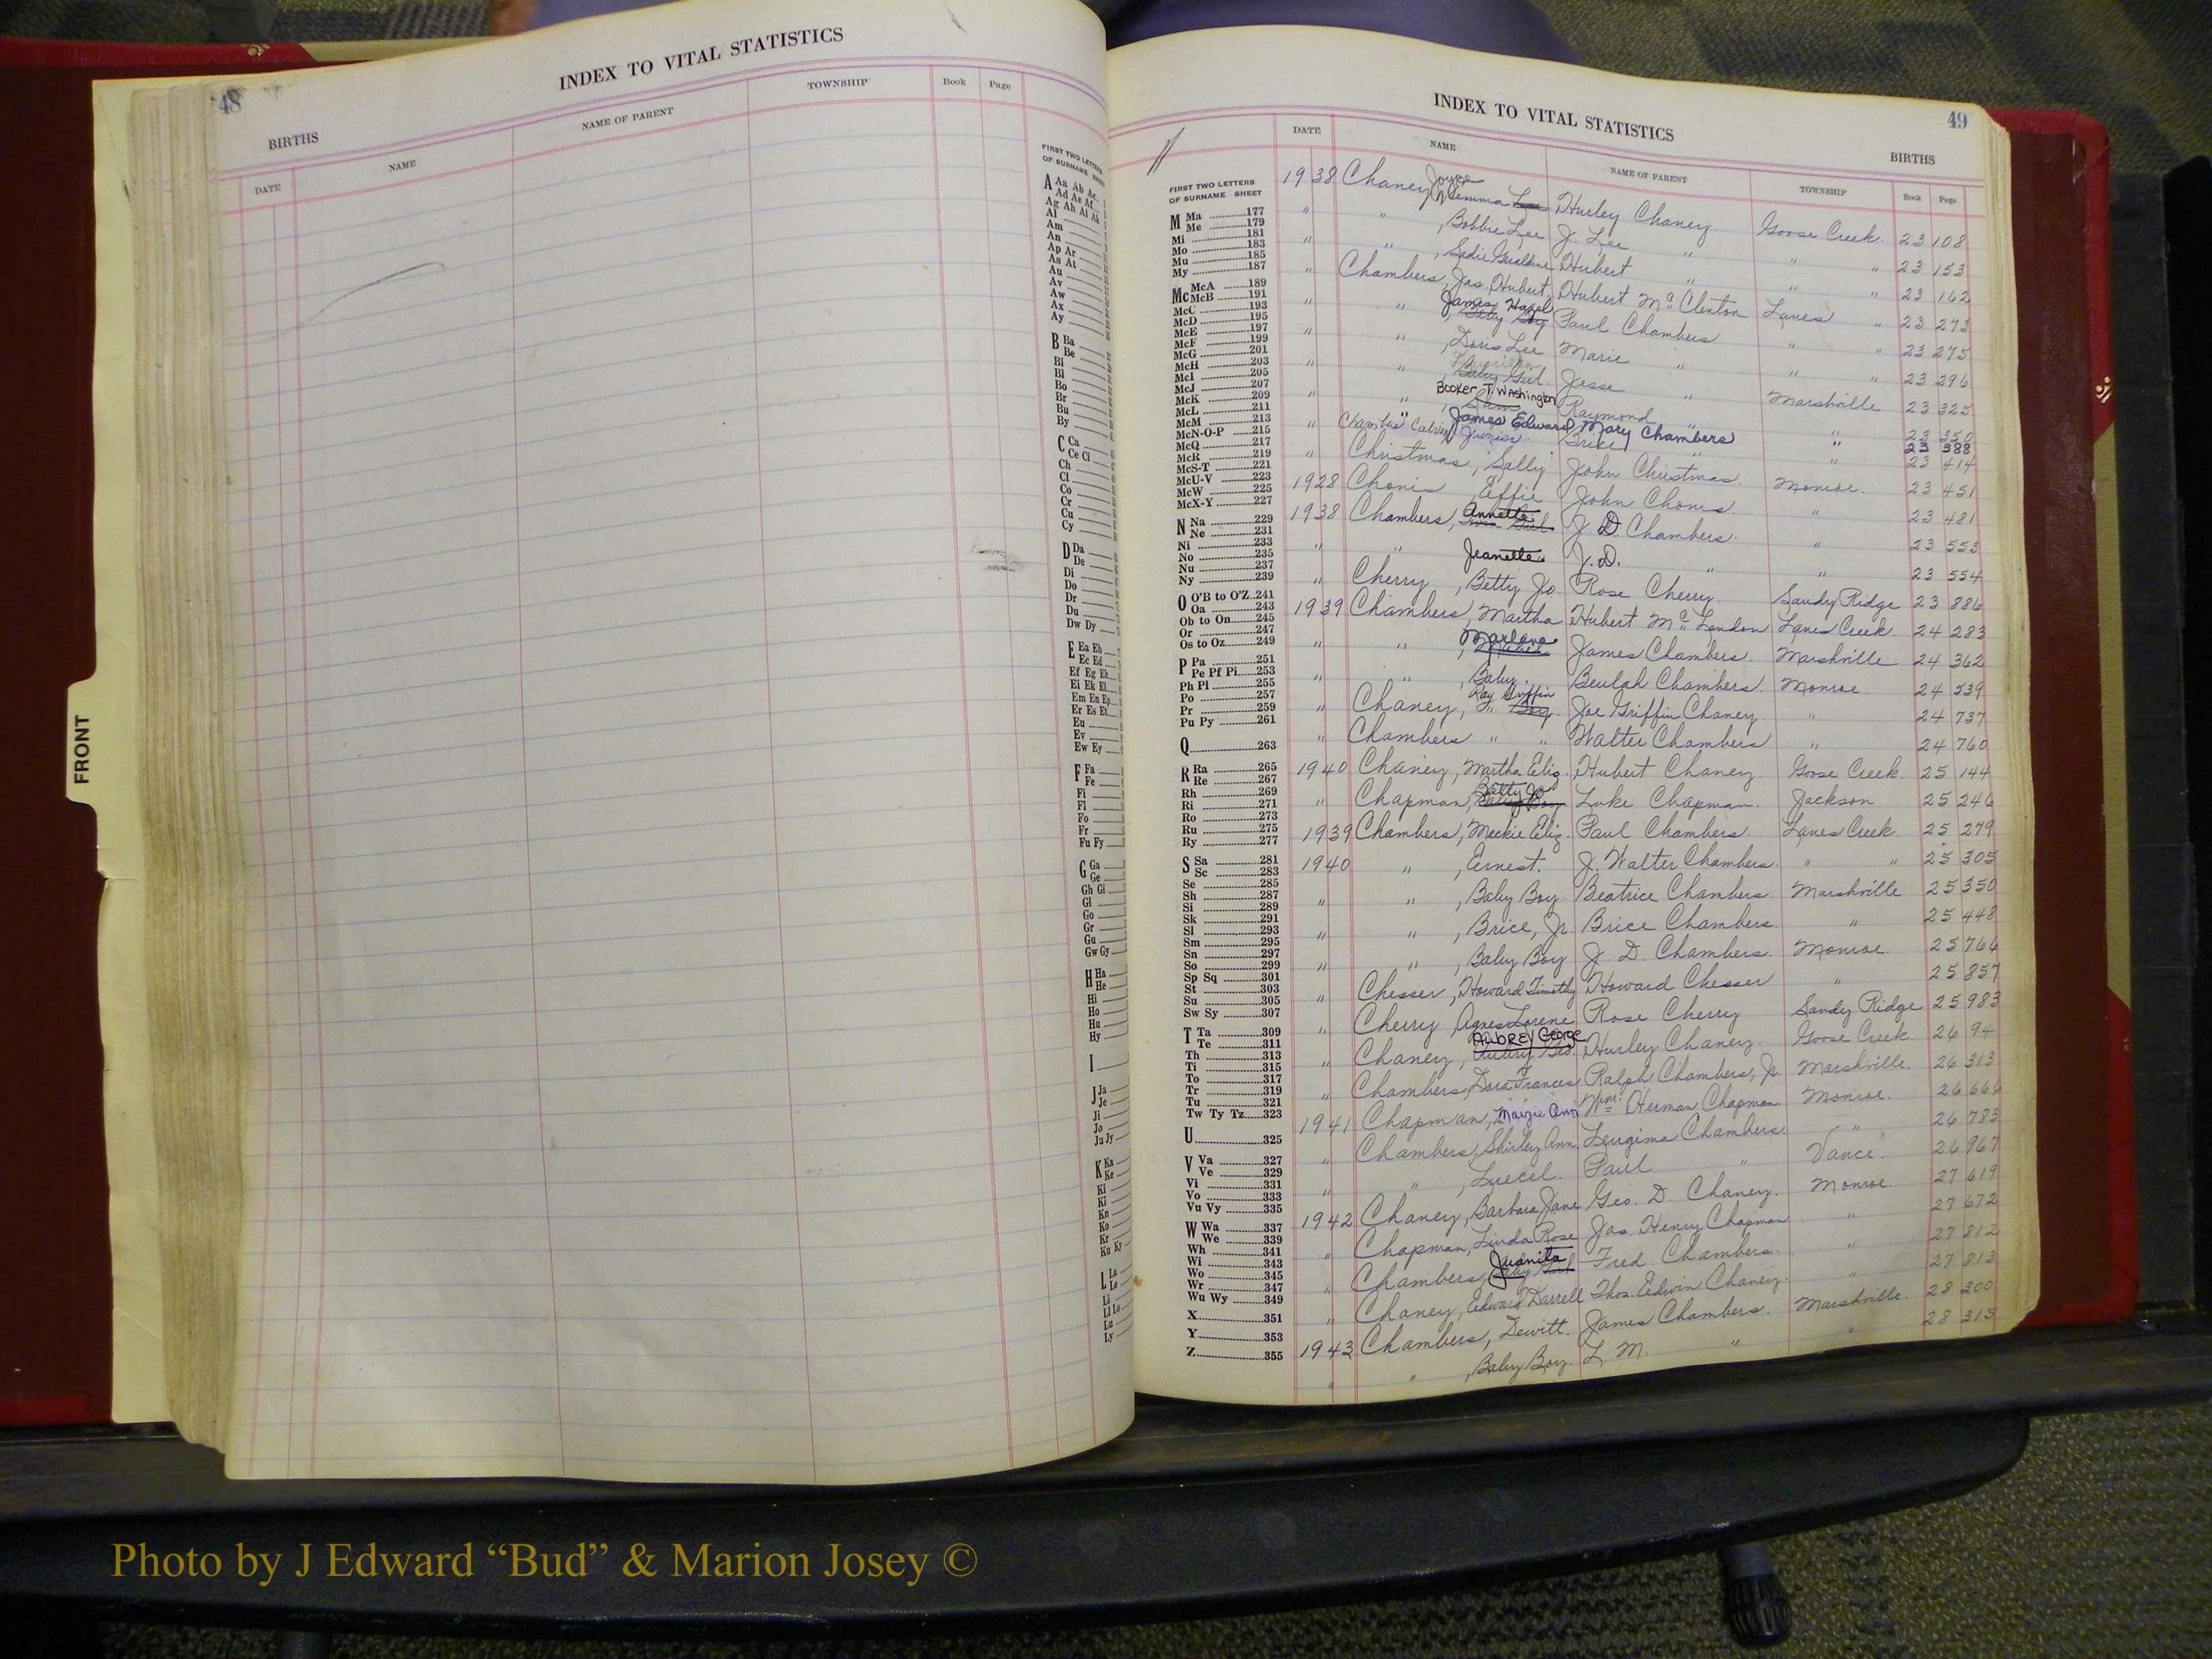 48
INDEX TO VITAL STATISTICS
BIRTHS
DATE NAME NAME OF PARENT TOWNSHIP Book Page
FIRST TWO LETTERS
OF SURNAME SHEET
A Aa Ab Ac
Ad Ae Af
Ag Ah Ai Ak
Al
Am
An
Ap Ar
As At
Au
Av
Aw
Ax
Ay
B Ba
Be
Bi
Bl
Bo
Br
Bu
By
C Ca
Ce Ci
Ch
Cl
Co
Cr
Cu
Cy
D Da
De
Di
Do
Dr
Du
Dw Dy
E Ea Eb
Ec Ed
Ef Eg Eh
Ei Ek El
Em En Ep
Er Es Et
Eu
Ev
Ew Ey
F Fa
Fe
Fi
Fl
Fo
Fr
Fu Fy
G Ga
Ge
Gh Gi
Gl
Go
Gr
Gu
Gw Gy
H Ha
He
Hi
Ho
Hu
Hy
I
J Ja
Je
Ji
Jo
Ju Jy
K Ka
Ke
Ki
Kl
Kn
Ko
Kr
Ku Ky
L La
Le
Li
Ll Lo
Lu
Ly
FRONT
49
INDEX TO VITAL STATISTICS
BIRTHS
DATE NAME NAME OF PARENT TOWNSHIP Book Page
FIRST TWO LETTERS
OF SURNAME SHEET
M Ma 177
Me 179
Mi 181
Mo 183
Mu 185
My 187
Mc McA 189
McB 191
McC 193
McD 195
McE 197
McF 199
McG 201
McH 203
McI 205
McJ 207
McK 209
McL 211
McM 213
McN-O-P 215
McQ 217
McR 219
McS-T 221
McU-V 223
McW 225
McX-Y 227
N Na 229
Ne 231
Ni 233
No 235
Nu 237
Ny 239
O O'B to O'Z 241
Oa 243
Ob to On 245
Or 247
Os to Oz 249
P Pa 251
Pe Pf Pi 253
Ph Pl 255
Po 257
Pr 259
Pu Py 261
Q 263
R Ra 265
Re 267
Rh 269
Ri 271
Ro 273
Ru 275
Ry 277
S Sa 281
Sc 283
Se 285
Sh 287
Si 289
Sk 291
Sl 293
Sm 295
Sn 297
So 299
Sp Sq 301
St 303
Su 305
Sw Sy 307
T Ta 309
Te 311
Th 313
Ti 315
To 317
Tr 319
Tu 321
Tw Ty Tz 323
U 325
V Va 327
Ve 329
Vi 331
Vo 333
Vu Vy 335
W Wa 337
We 339
Wh 341
Wi 343
Wo 345
Wr 347
Wu Wy 349
X 351
Y 353
Z 355
1938 Chaney, Joyce Hurley Chaney Goose Creek 23 108
" " , Bobbie Lee J. Lee " " " 23 153
" " , Sadie Geraldine Hubert " " " 23 162
" Chambers, Jas. Hubert Hubert Mc Clenton Lanes " 23 273
" " , James Hazel Baby Boy Paul Chambers " " 23 275
" " , Doris Lee Marie " " " 23 296
" " , Baby Girl Jesse " Marshville 23 325
" " , Booker T. Washington Raymond " " 23 350
James Edward Mary Chambers " 23 388
" Chambers Calvin Junior Brice " " 23 414
" Christmas, Sally John Christmas Monroe 23 451
1928 Chonis, Effie John Chonis " 23 481
1938 Chambers, Annette J. D. Chambers " 23 553
" " Jeanette J. D. " " 23 554
" Cherry, Betty Jo Rose Cherry Sandy Ridge 23 886
1939 Chambers, Martha Hubert Mc Lendon Lanes Creek 24 283
" " , Marlava James Chambers Marshville 24 362
" " , Baby Beulah Chambers Monroe 24 539
" Chaney, Ray Griffin " Boy Joe Griffin Chaney " 24 737
" Chambers " " Walter Chambers " 24 760
1940 Chaney, Martha Eliz. Hubert Chaney Goose Creek 25 144
" Chapman, Betty Jo Baby Boy Luke Chapman Jackson 25 246
1939 Chambers, Meekie Eliz. Paul Chambers Lanes Creek 25 279
1940 " , Ernest J. Walter Chambers " " 25 305
" " , Baby Boy Beatrice Chambers Marshville 25 350
" " , Brice, Jr. Brice Chambers " 25 448
" " , Baby Boy J. D. Chambers Monroe 25 766
" Chesser, Howard Timothy Howard Chesser " 25 857
" Cherry, Agnes Lorene Rose Cherry Sandy Ridge 25 983
" Chaney, AUBREY George Aubry Geo. Hurley Chaney Goose Creek 26 94
" Chambers, Dora Frances Ralph Chambers, Jr. Marshville 26 313
1941 Chapman, Maizie Ann Wm. Herman Chapman Monroe 26 666
" Chambers, Shirley Ann Chambers " 26 783
" " , Luecel Paul " Vance 26 967
1942 Chaney, Barbara Jane Geo. D. Chaney Monroe 27 619
" Chapman, Linda Rose Jas. Henry Chapman " 27 672
" Chambers, Juanita Baby Girl Fred Chambers " 27 812
" Chaney, Edward Darrell Thos. Edwin Chaney " 27 813
1943 Chambers, Dewitt James Chambers Marshville 28 300
" " , Baby Boy L. M. " " 28 313
Photo by J Edward “Bud” & Marion Josey ©